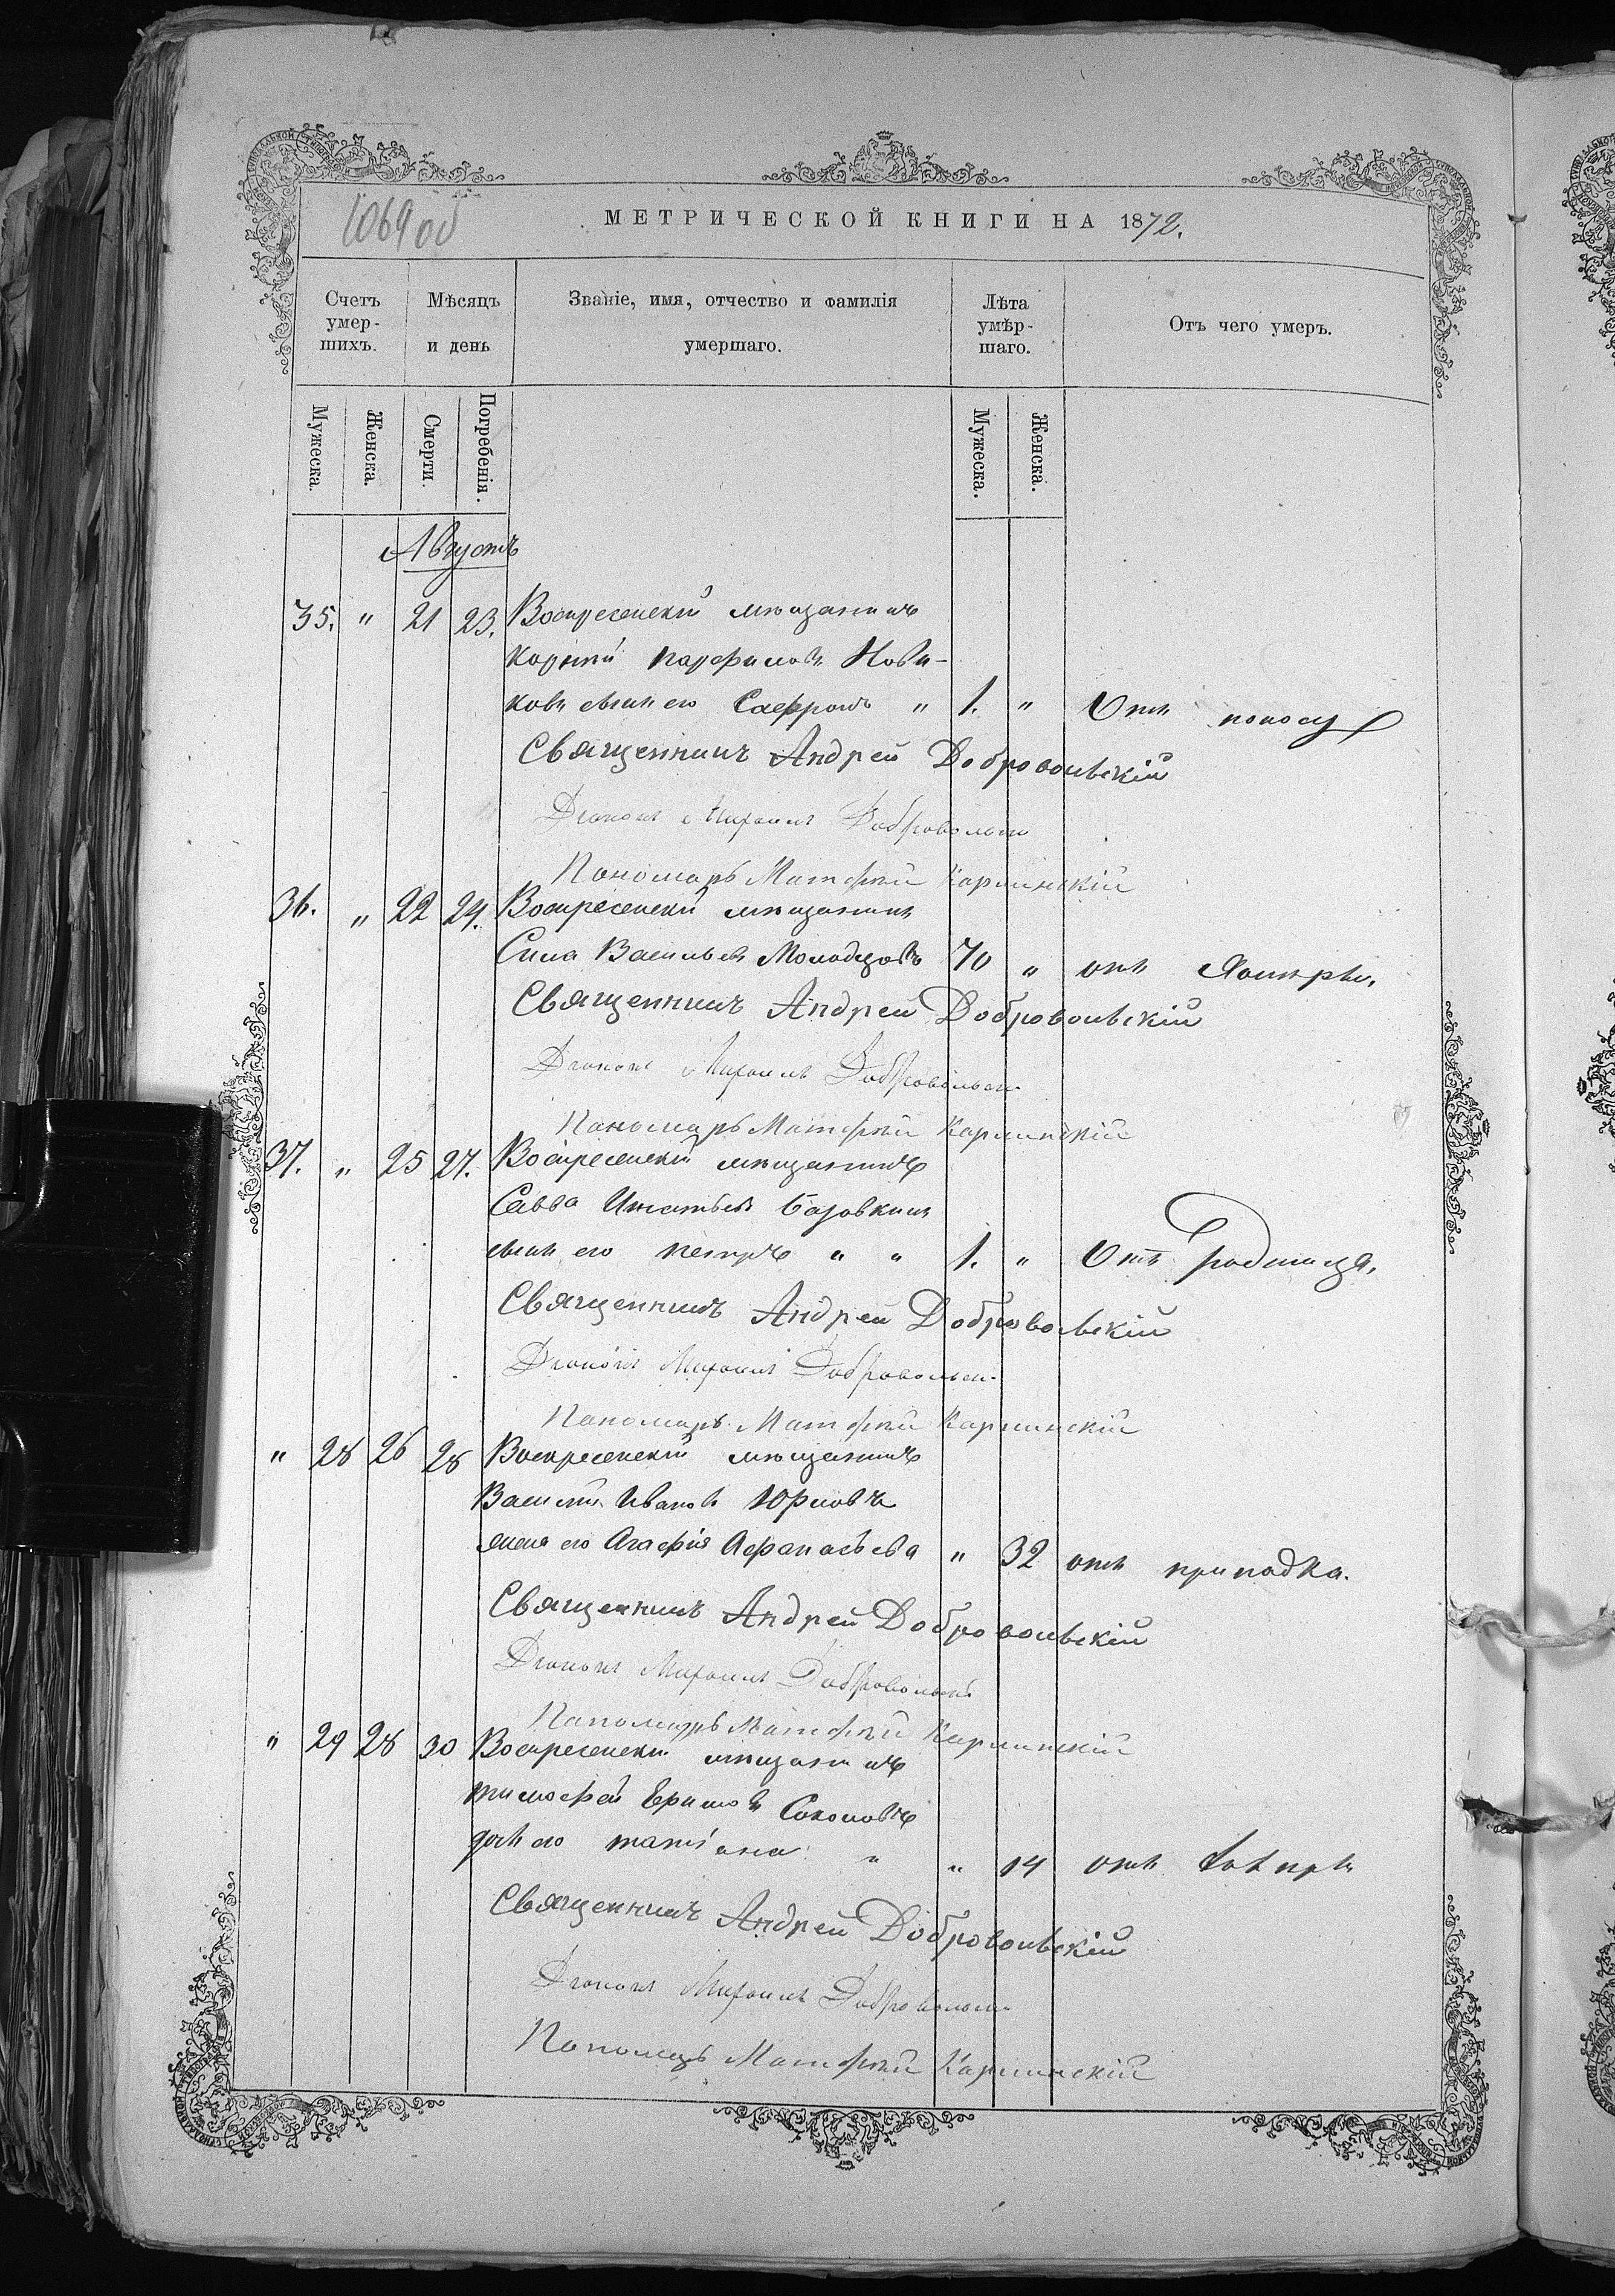 1069 об
МЕТРИЧЕСКОЙ КНИГИ НА 1872.
Счетъ умер-шихъ.
Мѣсяцъ и день
Званіе, имя, отчество и фамилія умершаго.
Лѣта умѣр-шаго.
Отъ чего умеръ.
Мужеска.
Женска.
Смерти.
Погребенія.
Мужеска.
Женска.
Августъ
35. " 21 23. Воскресенскій мѣщанинъ
Парфиловъ Нови-
ковъ сынъ его " 1. " Отъ поносу
Священникъ Андрей Добровольскій
Діаконъ Михаилъ Добровольск
Пономарь Матфѣй Карпинскій
36. " 22 24. Воскресенскій мѣщанинъ
Сила Васильевъ Молодцовъ 70 " отъ
Священникъ Андрей Добровольскій
Діаконъ Михаилъ Добровольск
Пономарь Матфѣй Карпинскій
37. " 25 27. Воскресенскій мѣщанинъ
Савва Игнатьевъ
сынъ его Петръ " " 1. " Отъ родимца.
Священникъ Андрей Добровольскій
Діаконъ Михаилъ Добровольск
Пономарь Матфѣй Карпинскій
" 28 26 28 Воскресенскій мѣщанинъ
Василій Ивановъ Юрловъ
жена его Агафія Афанасьева " 32 отъ припадка.
Священникъ Андрей Добровольскій
Діаконъ Михаилъ Добровольск
Пономарь Матфѣй Карпинскій
" 29 28 30 Воскресенскій мѣщанинъ
Тимофей Соколовъ
дочь его татіана " " 14 отъ
Священникъ Андрей Добровольскій
Діаконъ Михаилъ Добровольск
Пономарь Матфѣй Карпинскій